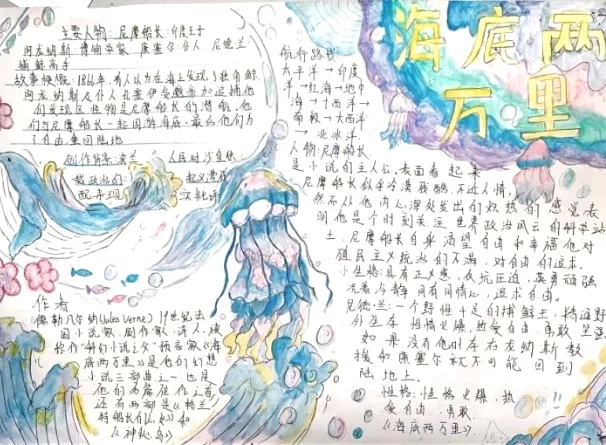 海底两
万里
主要人物:尼摩船长:印度王子
阿龙纳斯:博物学家 康塞尔:仆人 尼德兰
捕鲸高手
故事梗概:1866年,有人以为在海上发现了独角鲸
阿龙纳斯及仆人孔塞伊受邀参加追捕他
们发现这怪物是尼摩船长的潜艇,他
们与尼摩船长一起周游海底,最后他们为
了自由重回陆地
创作背景:波兰 人民对沙皇独
裁政治的 起义遭残
酷
航行路线:
太平洋→印度
洋→红海→地中
海→大西洋→
南极→大西洋
→北冰洋
人物:尼摩船长
是小说的主人公,表面看起来
尼摩船长似乎冷漠残酷,不近人情,
然而从他内心深处发出的炽热的感觉表
明他是个时刻关注世界政治风云的科学站
士,尼摩船长自身渴望自由和幸福他对
殖民主义统治们不满,对自由们追求。
具有正义感,反抗压迫,英勇顽强
沉着冷静 追求自由。
尼德·兰:一个野性十足的捕鲸手,精通野
外生存 性情火爆,热爱自由 勇敢 坚强
如果没有他 阿龙纳斯教
授和康塞尔就不可能回到
陆地上。
性格:性格火爆,热
爱自由,勇敢
《海底两万里》
作者
儒勒凡尔纳(Jules Verne)19世纪法
国小说家、剧作家、诗人,被
称作“科幻小说之父”预言家《海
底两万里》是他们幻想
小说三部曲之一也是
他们的 作之首
还有两部是《格兰
特船长的儿女》和
《神秘岛》